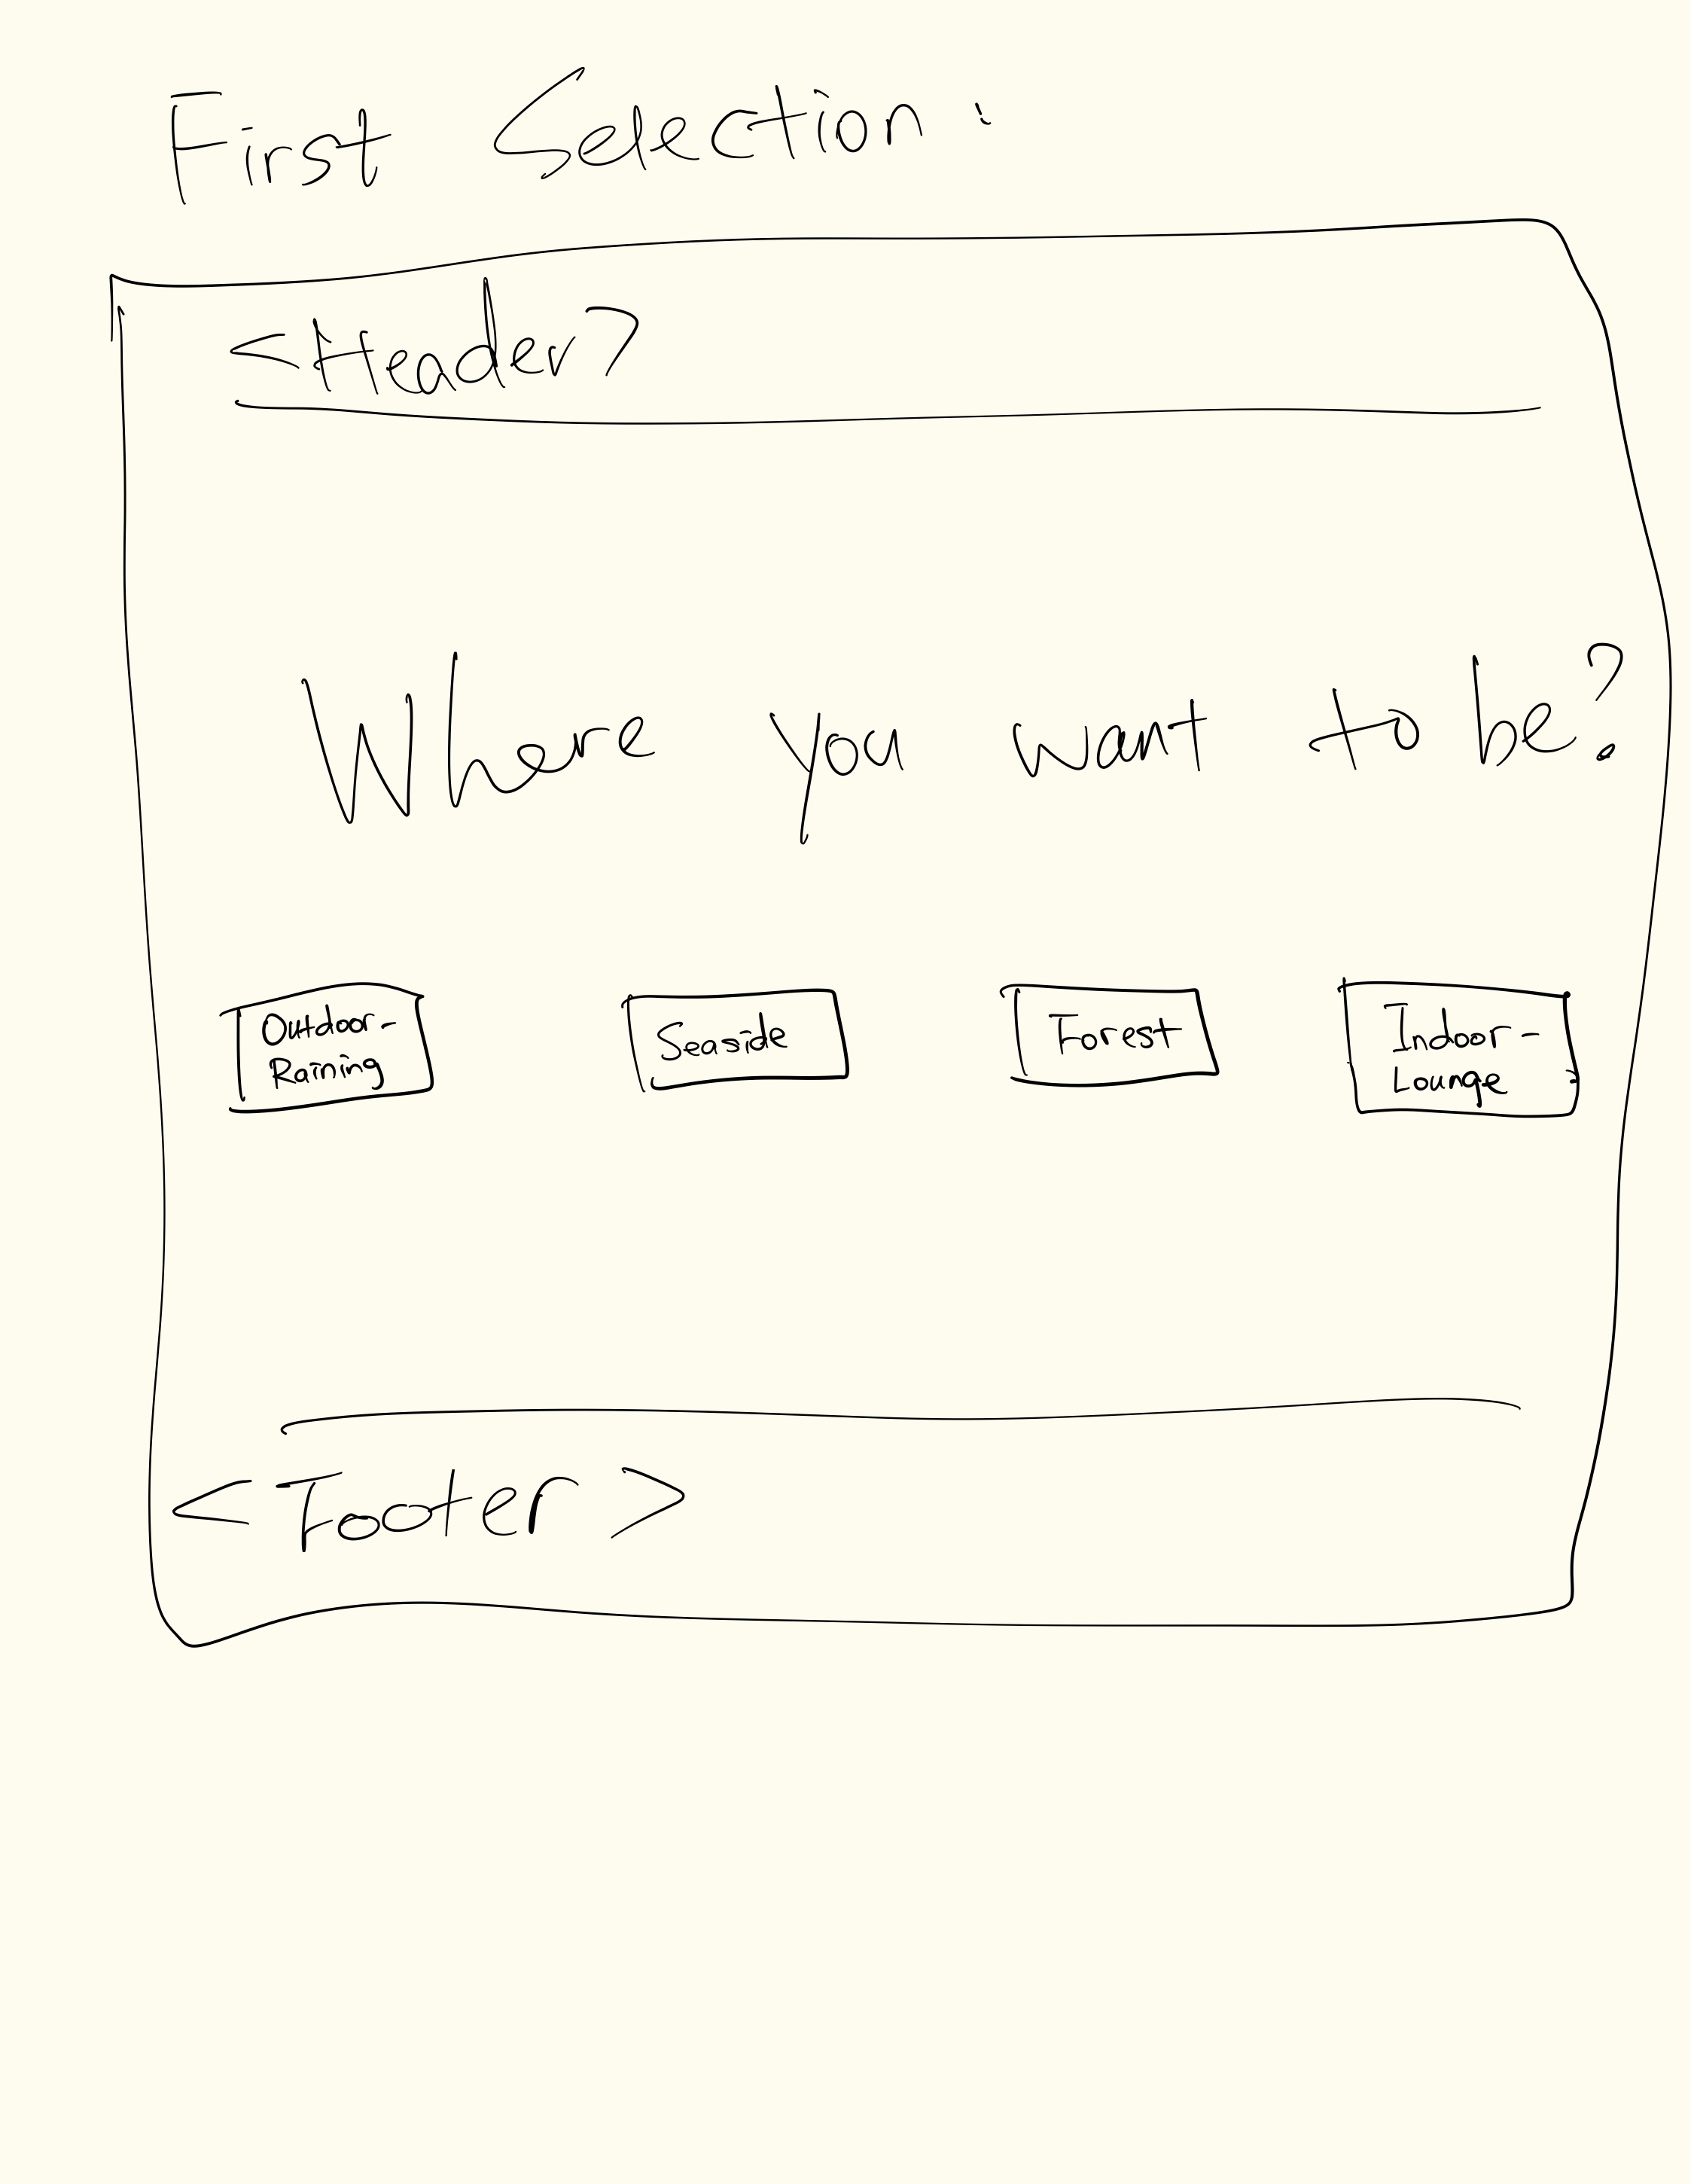 First Selection:
<Header>
Where you want to be?
Outdoor-
Raining
Seaside
Forest
Indoor-
Lounge
<Footer>